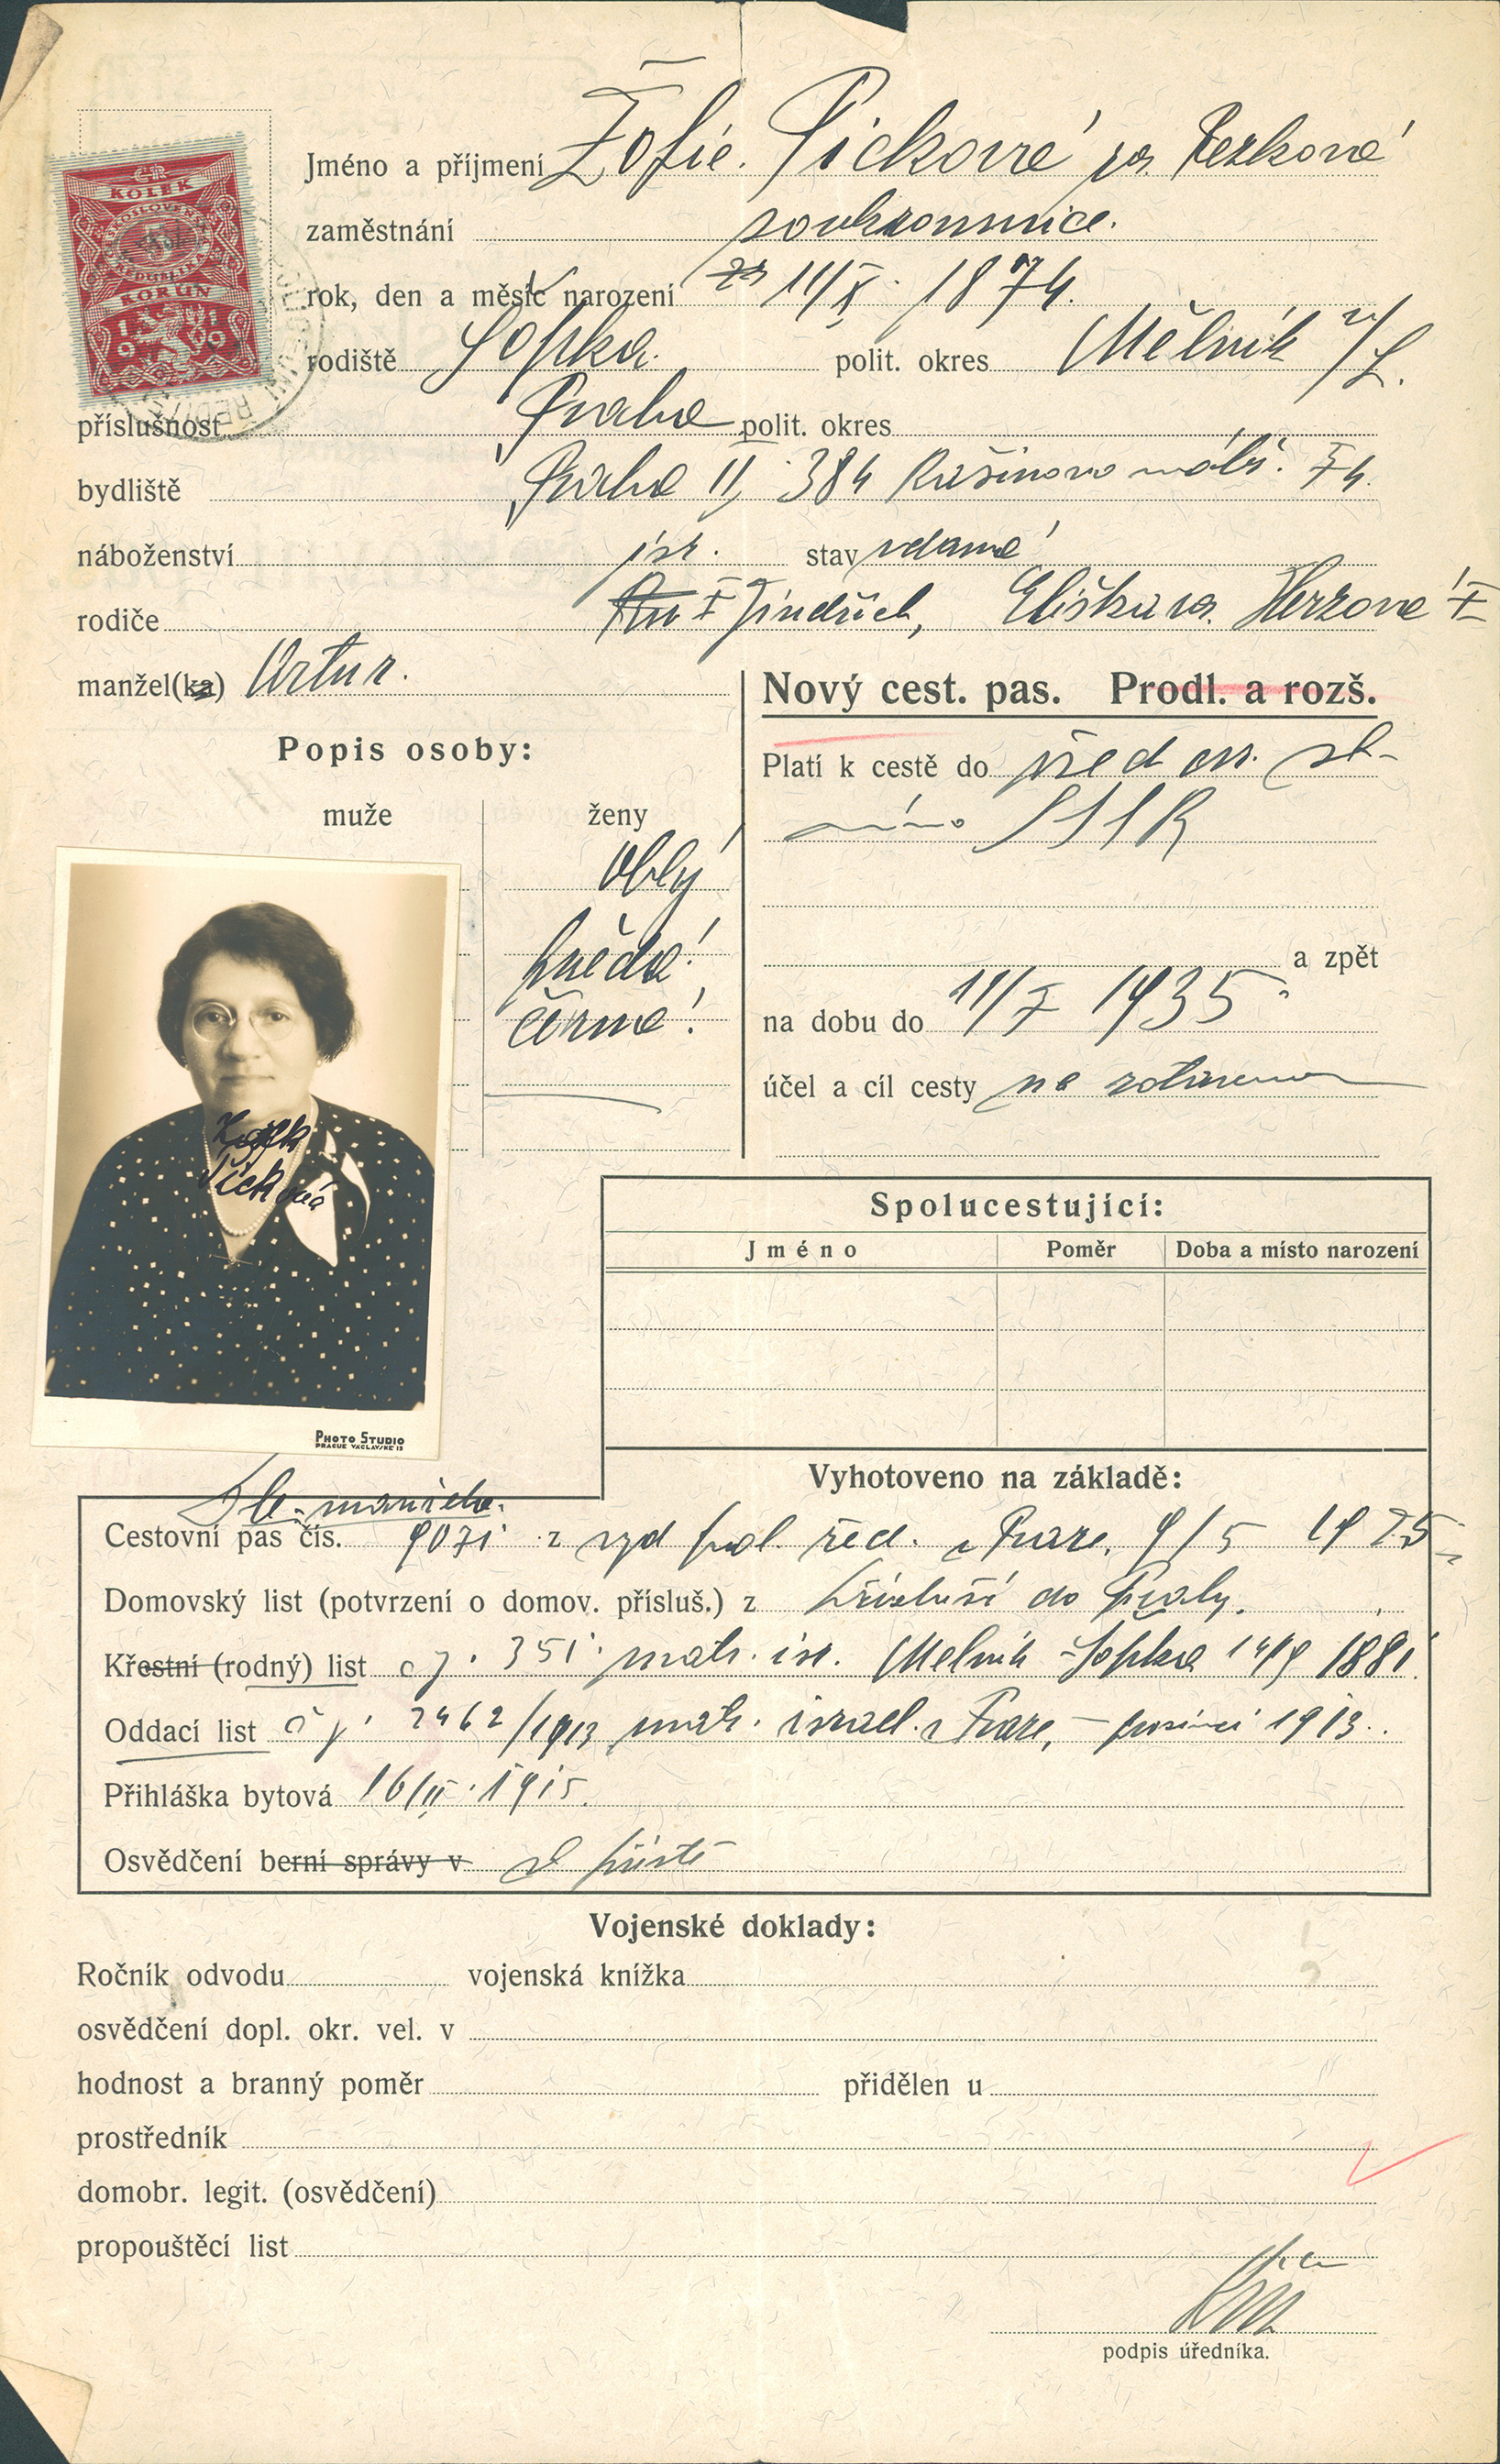 KOLEK
ČESKOSLOVENSKÁ
REPUBLIKA
5
KORUN
1919
Jméno a příjmení Žofie Picková roz.
zaměstnání soukromnice.
rok, den a měsíc narození 11/X. 1874.
rodiště Šopka. polit. okres Mělník n/L.
příslušnost Praha polit. okres
bydliště Praha II, 384 Rašínovo nábř. 74.
náboženství isr. stav vdaná
rodiče Jindřich, Eliška roz. Herzová
manžel(ka) Artur.
Nový cest. pas. Prodl. a rozš.
Popis osoby:
Platí k cestě do všech evr. st-
mimo SSSR
muže ženy
oblý
hnědé
černé
a zpět
na dobu do 11/V 1935
účel a cíl cesty na zotavenou
Žofie
Picková
PHOTO STUDIO
PRAGUE VACLAVSKE 13
Spolucestující:
Jméno Poměr Doba a místo narození
Vyhotoveno na základě:
Dle manžela.
Cestovní pas čís. 9071 z vyd pol. řed. v Praze, 9/5 1925
Domovský list (potvrzení o domov. přísluš.) z do Prahy.
Křestní (rodný) list čj. 351 matr. isr. Mělník - Šopka 14/9 1881
Oddací list čj. 2462/1913 matr. israel. v Praze, – prosinci 1913.
Přihláška bytová 16/II. 1915.
Osvědčení berní správy v
Vojenské doklady:
Ročník odvodu vojenská knížka
osvědčení dopl. okr. vel. v
hodnost a branný poměr přidělen u
prostředník
domobr. legit. (osvědčení)
propouštěcí list
podpis úředníka.